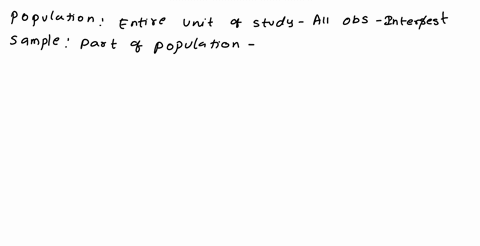 Population: Entire unit of study - All obs - Interest
Sample: Part of population -